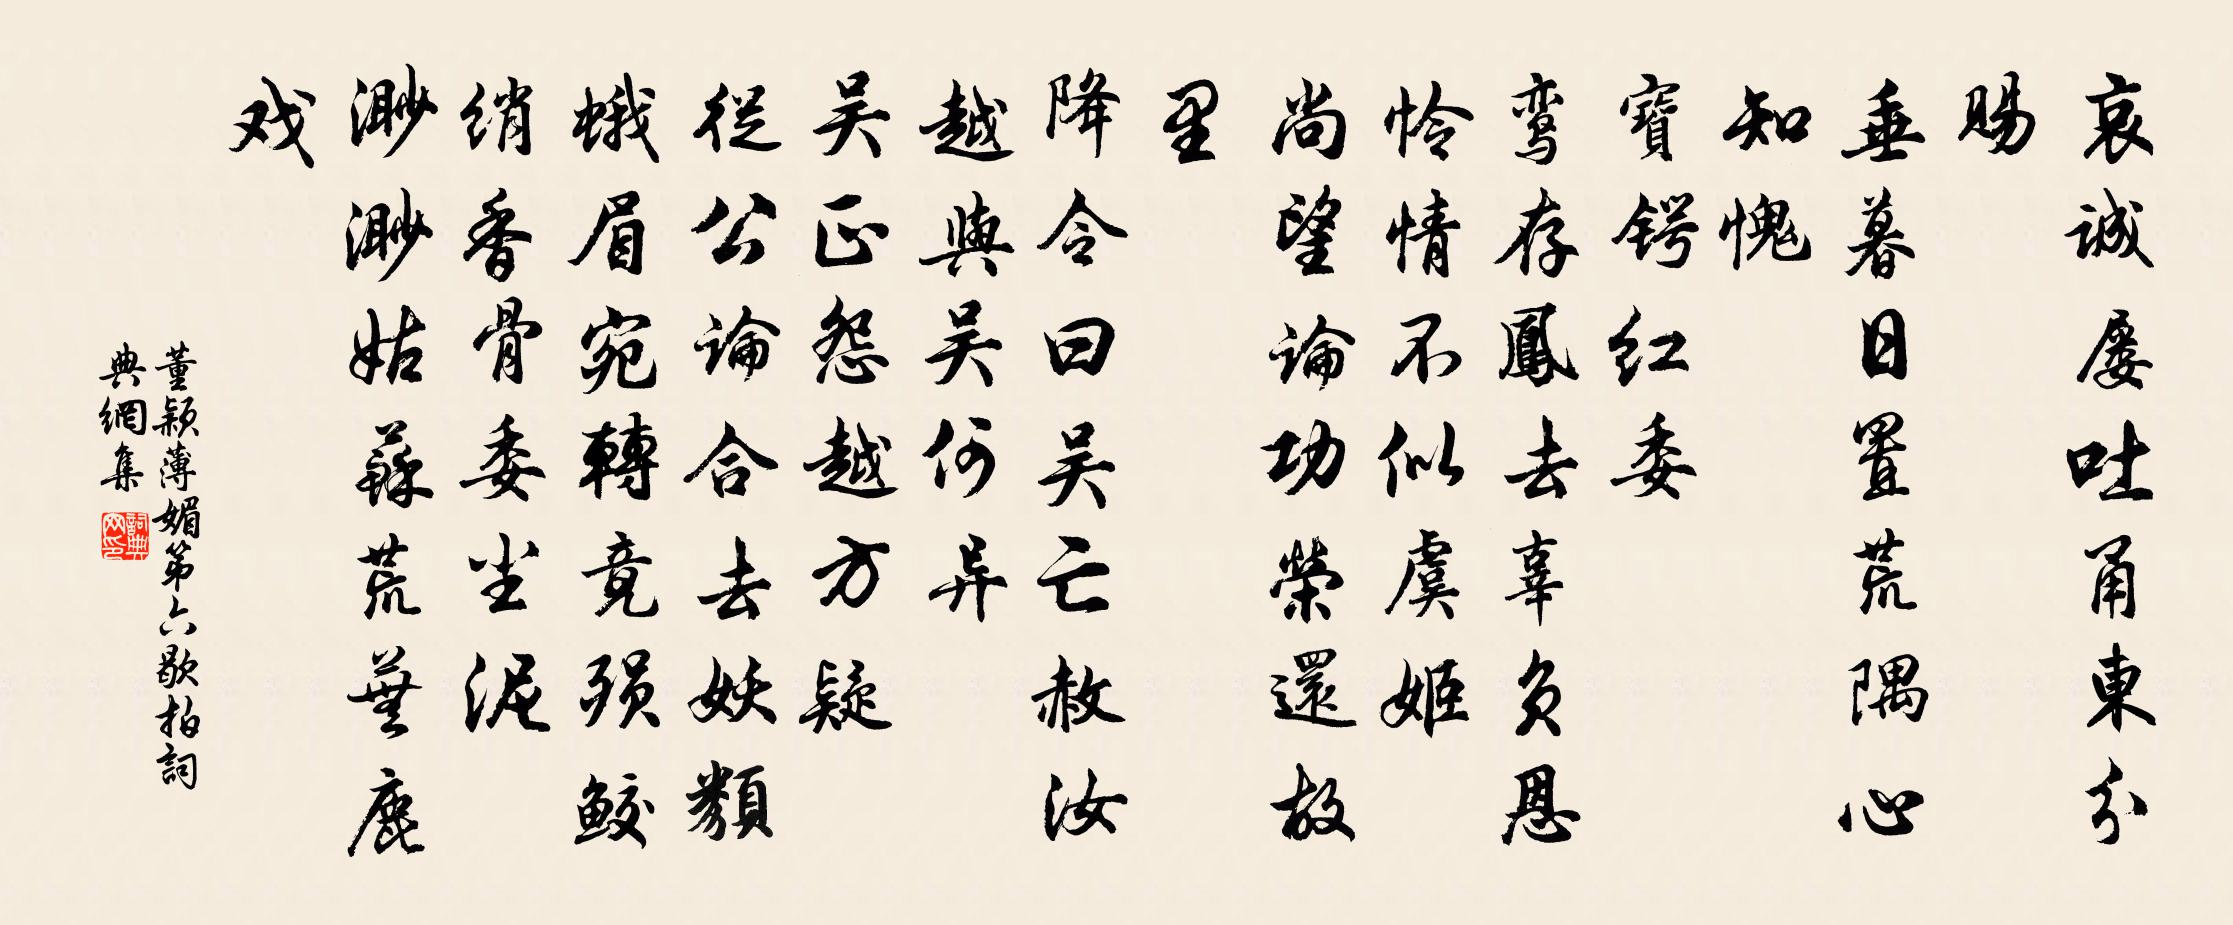 哀誠屡吐甬東分
賜
垂暮日置荒隅心
知愧
寶锷红委
鸾存鳳去辜负恩
怜情不似虞姬
尚望論功榮還故
里
降令曰吴亡赦汝
越與吴何异
吴正怨越方疑
從公論合去妖類
蛾眉宛轉竟殞鲛
绡香骨委尘泥
渺渺姑蘇荒蕪鹿
戏
董颖薄媚第六歇拍詞
典網集
詞典网印